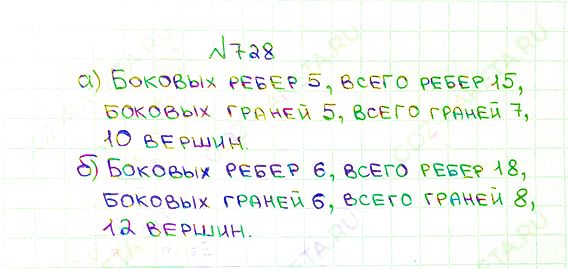 №728
а) Боковых ребер 5, всего ребер 15,
боковых граней 5, всего граней 7,
10 вершин.
б) Боковых ребер 6, всего ребер 18,
боковых граней 6, всего граней 8,
12 вершин.